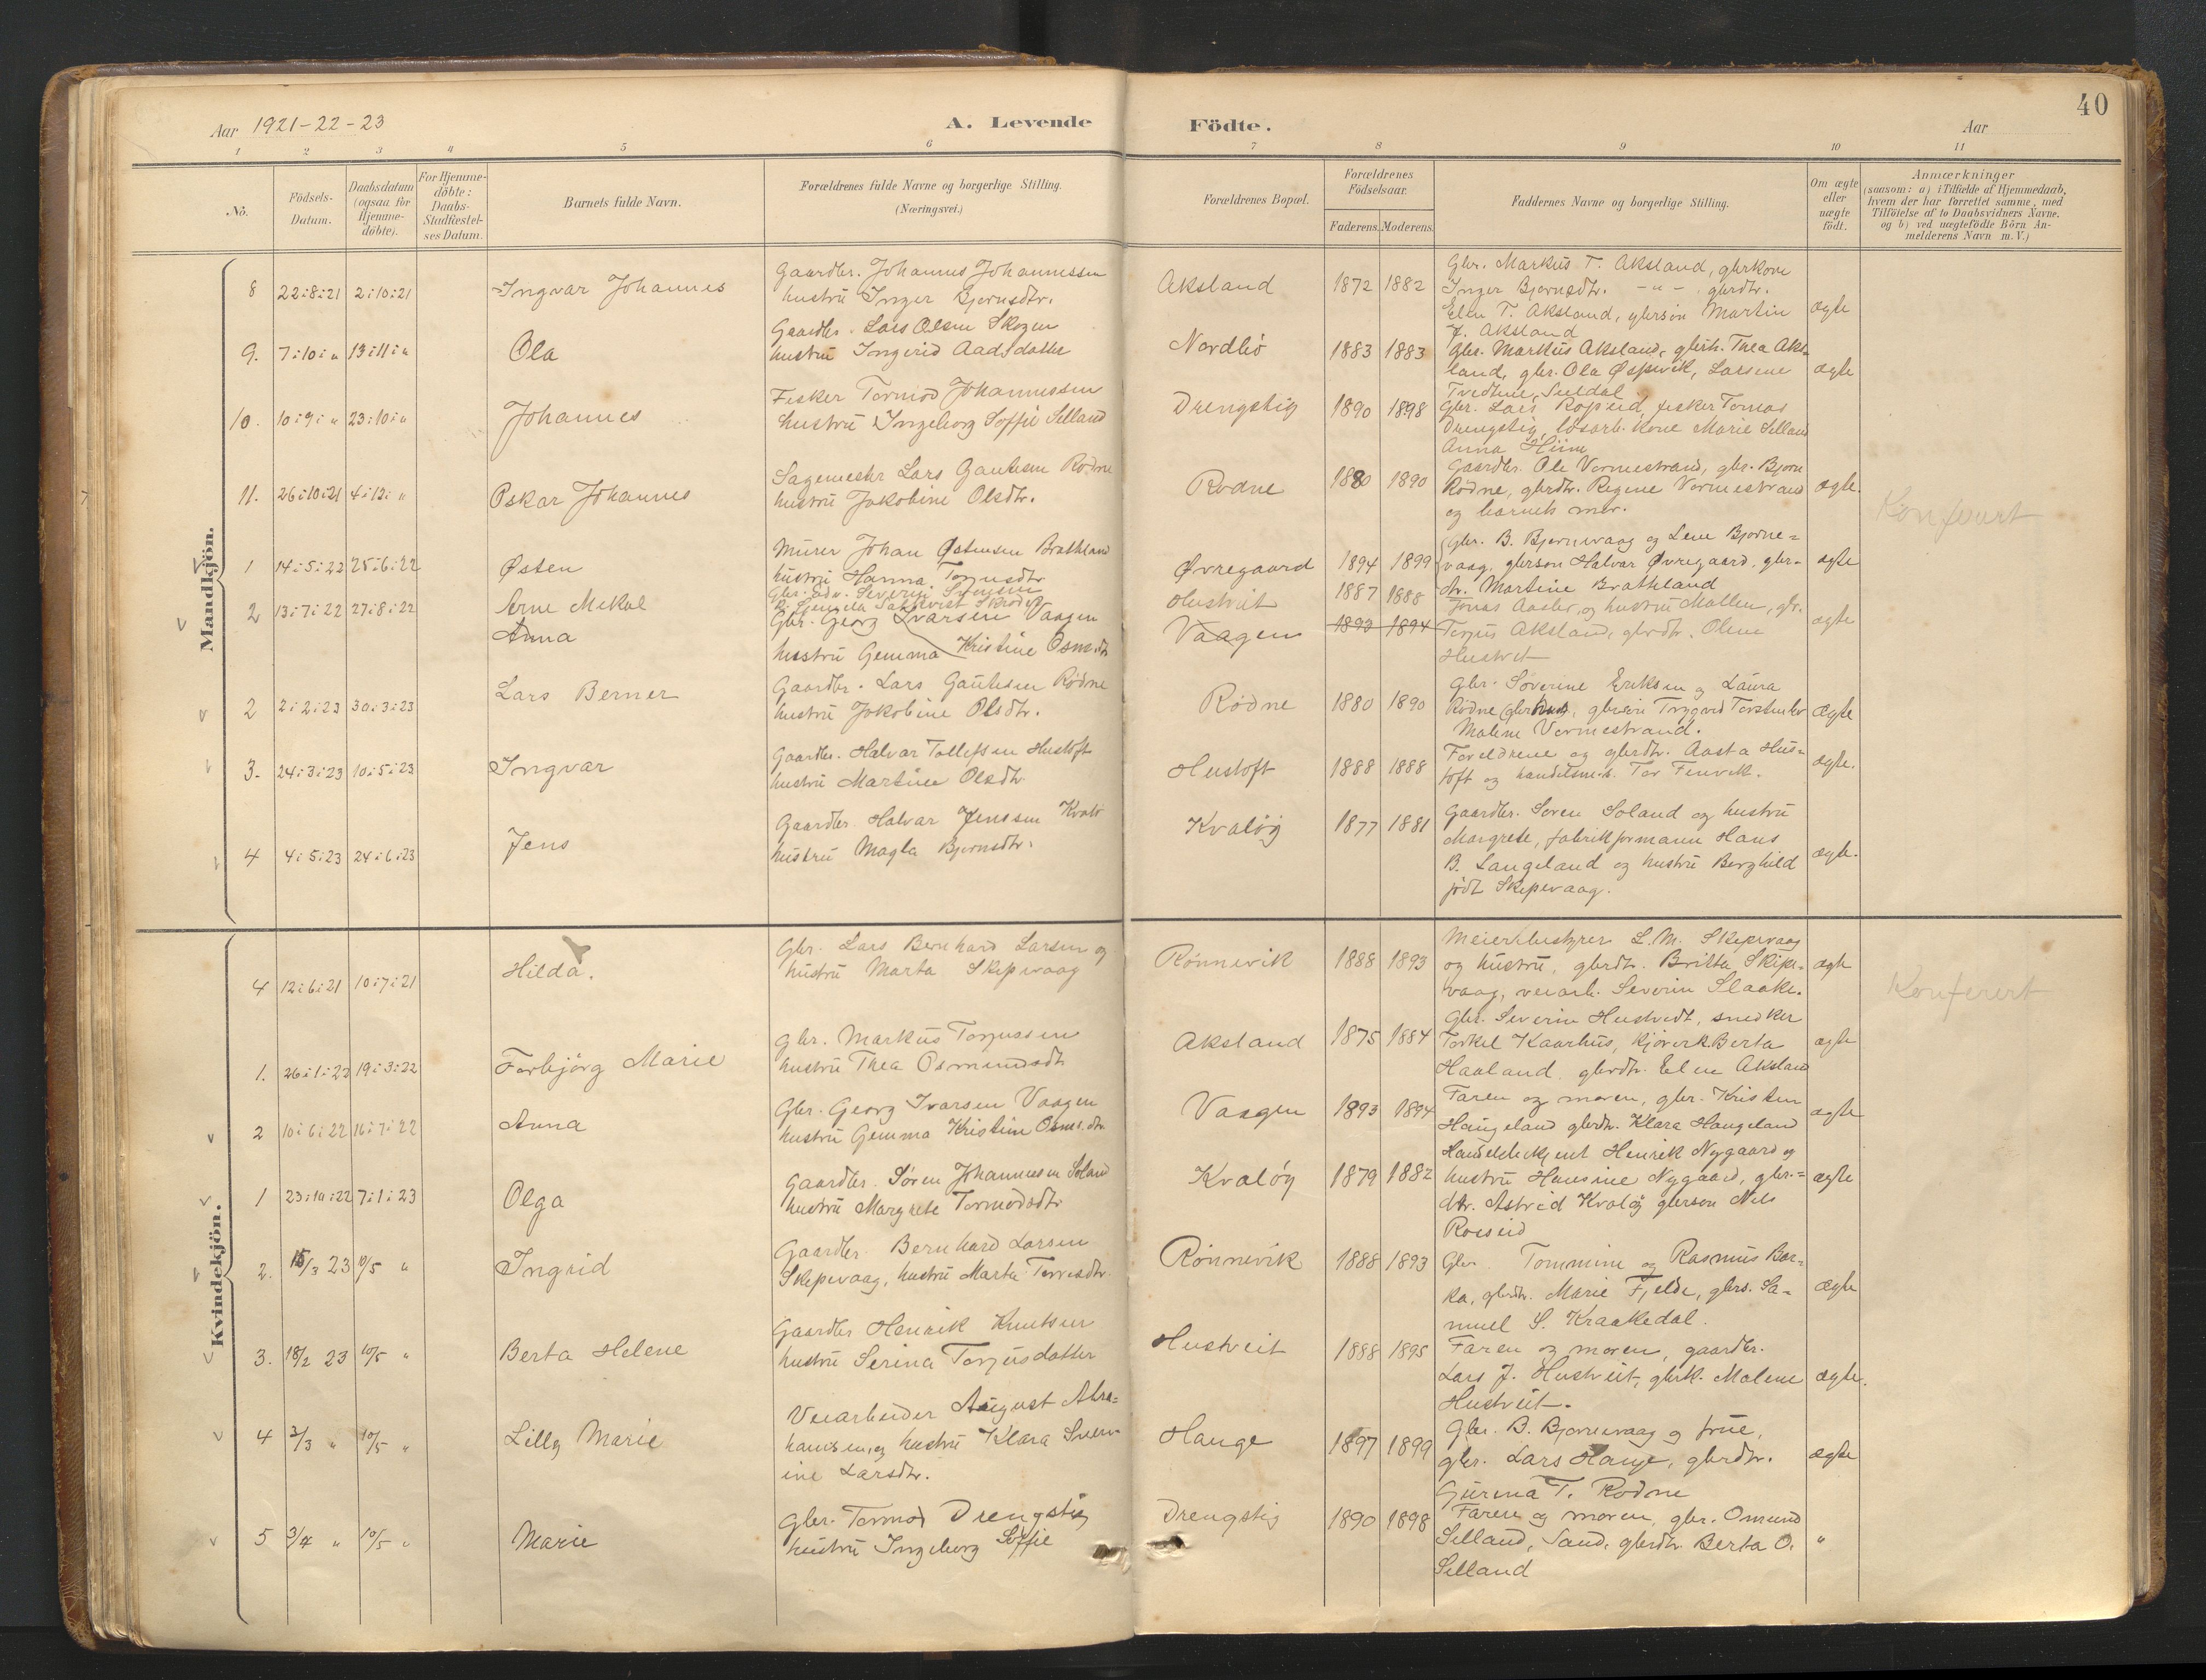 Aar 1921-22-23
A. Levende
Födte.
Aar
40
1 2 3 4 5 6 7 8 9 10 11
No.
Födsels-Datum.
Daabsdatum (ogsaa for Hjemme-döbte).
For Hjemme-döbte: Daabs-Stadfæstel-ses Datum.
Barnets fulde Navn.
Forældrenes fulde Navne og borgerlige Stilling.
(Næringsvei.)
Forældrenes Bopæl.
Forældrenes Födselsaar.
Faderens. Moderens.
Faddernes Navne og borgerlige Stilling.
Om ægte eller uægte födt.
Anmærkninger
(saasom: a) i Tilfælde af Hjemmedaab,
hvem der har forrettet samme, med
Tilföielse af to Daabsvidners Navne.
og b) ved uægtefödte Börn An-
melderens Navn m. V.)
Mandkjön.
8 22:8:21 2:10:21 Ingvar Johannes
Gaardbr. Johannes Johannessen
hustru Inger Bjornsdtr.
Aksland 1872 1882
Gbr. Markus T. Aksland, gbrkone
Inger Bjornsdtr. -"- gbrdtr.
Elen T. Aksland, gbrson Martin
J. Aksland
ægte
9. 7:10:" 13:11:" Ola
Gaardbr. Lars Olsen Skogen
hustru Ingerid Aadsdatter
Nordbø 1883 1883
Gbr. Markus Aksland, gbrh. Thea Aks-
land, gbr. Ola Øspevik, Larsene
Tvedtene, Suldal
ægte
10. 10:9:" 23:10:" Johannes
Fisker Tormod Johannessen
hustru Ingeborg Soffie Selland
Drengstig 1890 1898
Gbr. Lars Ropeid, fisker Tomas
Drengstig, løsarb. kone Marie Selland
Anna Hiim
11. 26:10:21 4:12:" Oskar Johannes
Sagemester Lars Gautesen Rødne
hustru Jakobine Olsdtr.
Rødne 1880 1890
Gaardbr. Ole Vormestrand, gbr. Bjorn
Rødne, gbrdtr. Regine Vormestrand
og barnets mor.
ægte.
Konferert
1 14:5:22 25:6:22 Østen
Murer Johan Østensen Brathland
hustru Hanna Torjusdtr
Øvregaard 1894 1899
Gbr. B. Bjornevaag og Lene Bjorne-
vaag, gbrson Halvar Øvregaard, gbr-
dtr. Martine Brathland
ægte
2 13:7:22 27:8:22 Arne Mikal
Gbr. Severin
Hustveit 1887 1888
Jonas Aasbr, og hustru Mallen, gbr.
Torjus Aksland, gbrdtr. Olene
Hustveit
ægte
Anna
Gbr. Georg Ivarsen Vaagen
hustru Gemma Kristine Osm.dtr
Vaagen 1893 1894
2 2:2:23 30:3:23 Lars Berner
Gaardbr. Lars Gautesen Rødne
hustru Jakobine Olsdtr.
Rødne 1880 1890
Gbr. Søverine Eriksen og Laura
Rødne, gbrson Trygvard
Malene Vormestrand.
Ægte
3. 24:3:23 10:5:23 Ingvar
Gaardbr. Halvar Tollefsen Hustoft
hustru Martine Olsdtr
Hustoft 1888 1888
Foreldrene og gbrdtr. Aasta Hus-
toft og handelsm.b. Tor Finvik.
ægte.
4 4:5:23 24:6:23 Jens
Gaardbr. Halvar Jenssen
hustru Magla Bjornsdtr.
Kvaløy 1877 1881
Gaardbr. Søren Soland og hustru
Margrete, fabrikformann Hans
B. Langeland og hustru Borghild
født Skipevaag.
ægte.
Kvindekjön.
4 12:6:21 10:7:21 Hilda.
Gbr. Lars Bernhard Larsen og
hustru Marta Skipevaag
Rønnevik 1888 1893
Meieribestyrer L.M. Skipevaag
og hustru, gbrdtr. Britta Skipe-
vaag, veiarb. Severin Slaake.
ægte
Konferert
1. 26:1:22 19:3:22 Torbjørg Marie
Gbr. Markus Torjussen
hustru Thea Osmundsdtr
Aksland 1875 1884
Gbr. Severin Hustvedt, snedker
Torkel Kaarhus, Berta
Haaland, gbrdtr. Elen Aksland
ægte
2 10:6:22 16:7:22 Anna
Gbr. Georg Ivarsen Vaagen
hustru Gemma Kristine Osms.dtr.
Vaagen 1893 1894
Faren og moren, gbr. Kristen
Haugeland gbrdtr. Klara Haugeland
ægte
1 23:10:22 7:1:23 Olga
Gaardbr. Søren Johannessen Soland
hustru Margrete Tormodsdtr
Kvaløy 1879 1882
Handelsbetjent Henrik Nygaard og
hustru Hansine Nygaard, gbr.-
dtr. Astrid Kvaløy gbrson Nils
Roeseid
ægte
2. 15/3 23 10/5 " Ingrid
Gaardbr. Bernhard Larsen
Skipevaag, hustru Marta Torresdtr.
Rønnevik 1888 1893
Gbr. Tommine og Rasmus Bar-
ka, gbrdtr. Marie Fjelde, gbrs. Sa-
muel S. Kraakedal.
ægte
3. 18/2 23 10/5 " Berta Helene
Gaardbr Henrik Knutsen
hustru Serina Torjusdatter
Hustveit 1888 1895
Faren og moren, gaardbr.
Lars J. Hustveit, gbrk. Malene
Hustveit.
ægte.
4 3/3 " 10/5 " Lilly Marie
Veiarbeider August Abra-
hamsen, og hustru Klara Sever-
ine Larsdtr.
Hauge 1897 1899
Gbr. B. Bjornevaag og frue,
gbr. Lars Hauge, gbrdtr.
Gurina T. Rødne
ægte
5 3/4 " 10/5 " Marie
Gbr. Tormod Drengstig
hustru Ingeborg Soffie
Drengstig 1890 1898
Faren og moren, gbr. Omund
Selland, Sand, gbrdtr. Berta O.
Selland
"